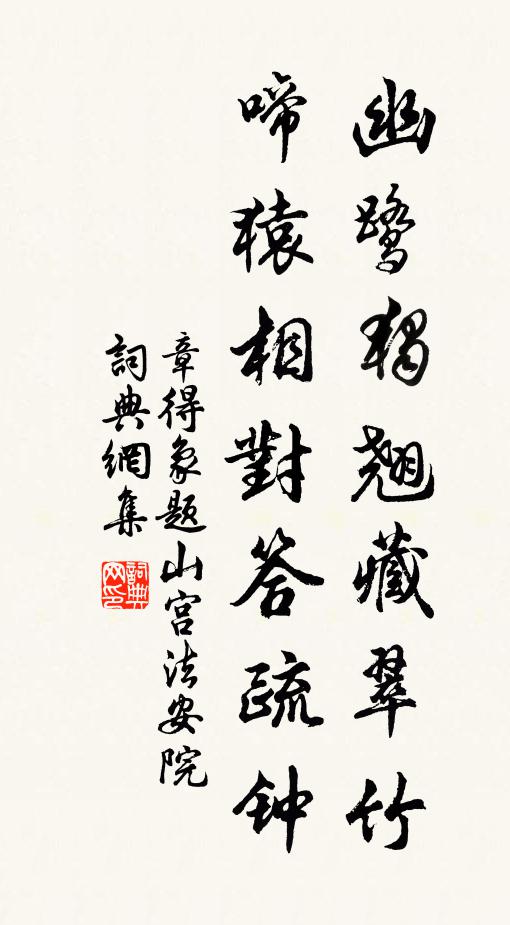 幽鹭独翘藏翠竹
啼猿相對答疏钟
章得象题山宫法安院
詞典網集
詞典网印